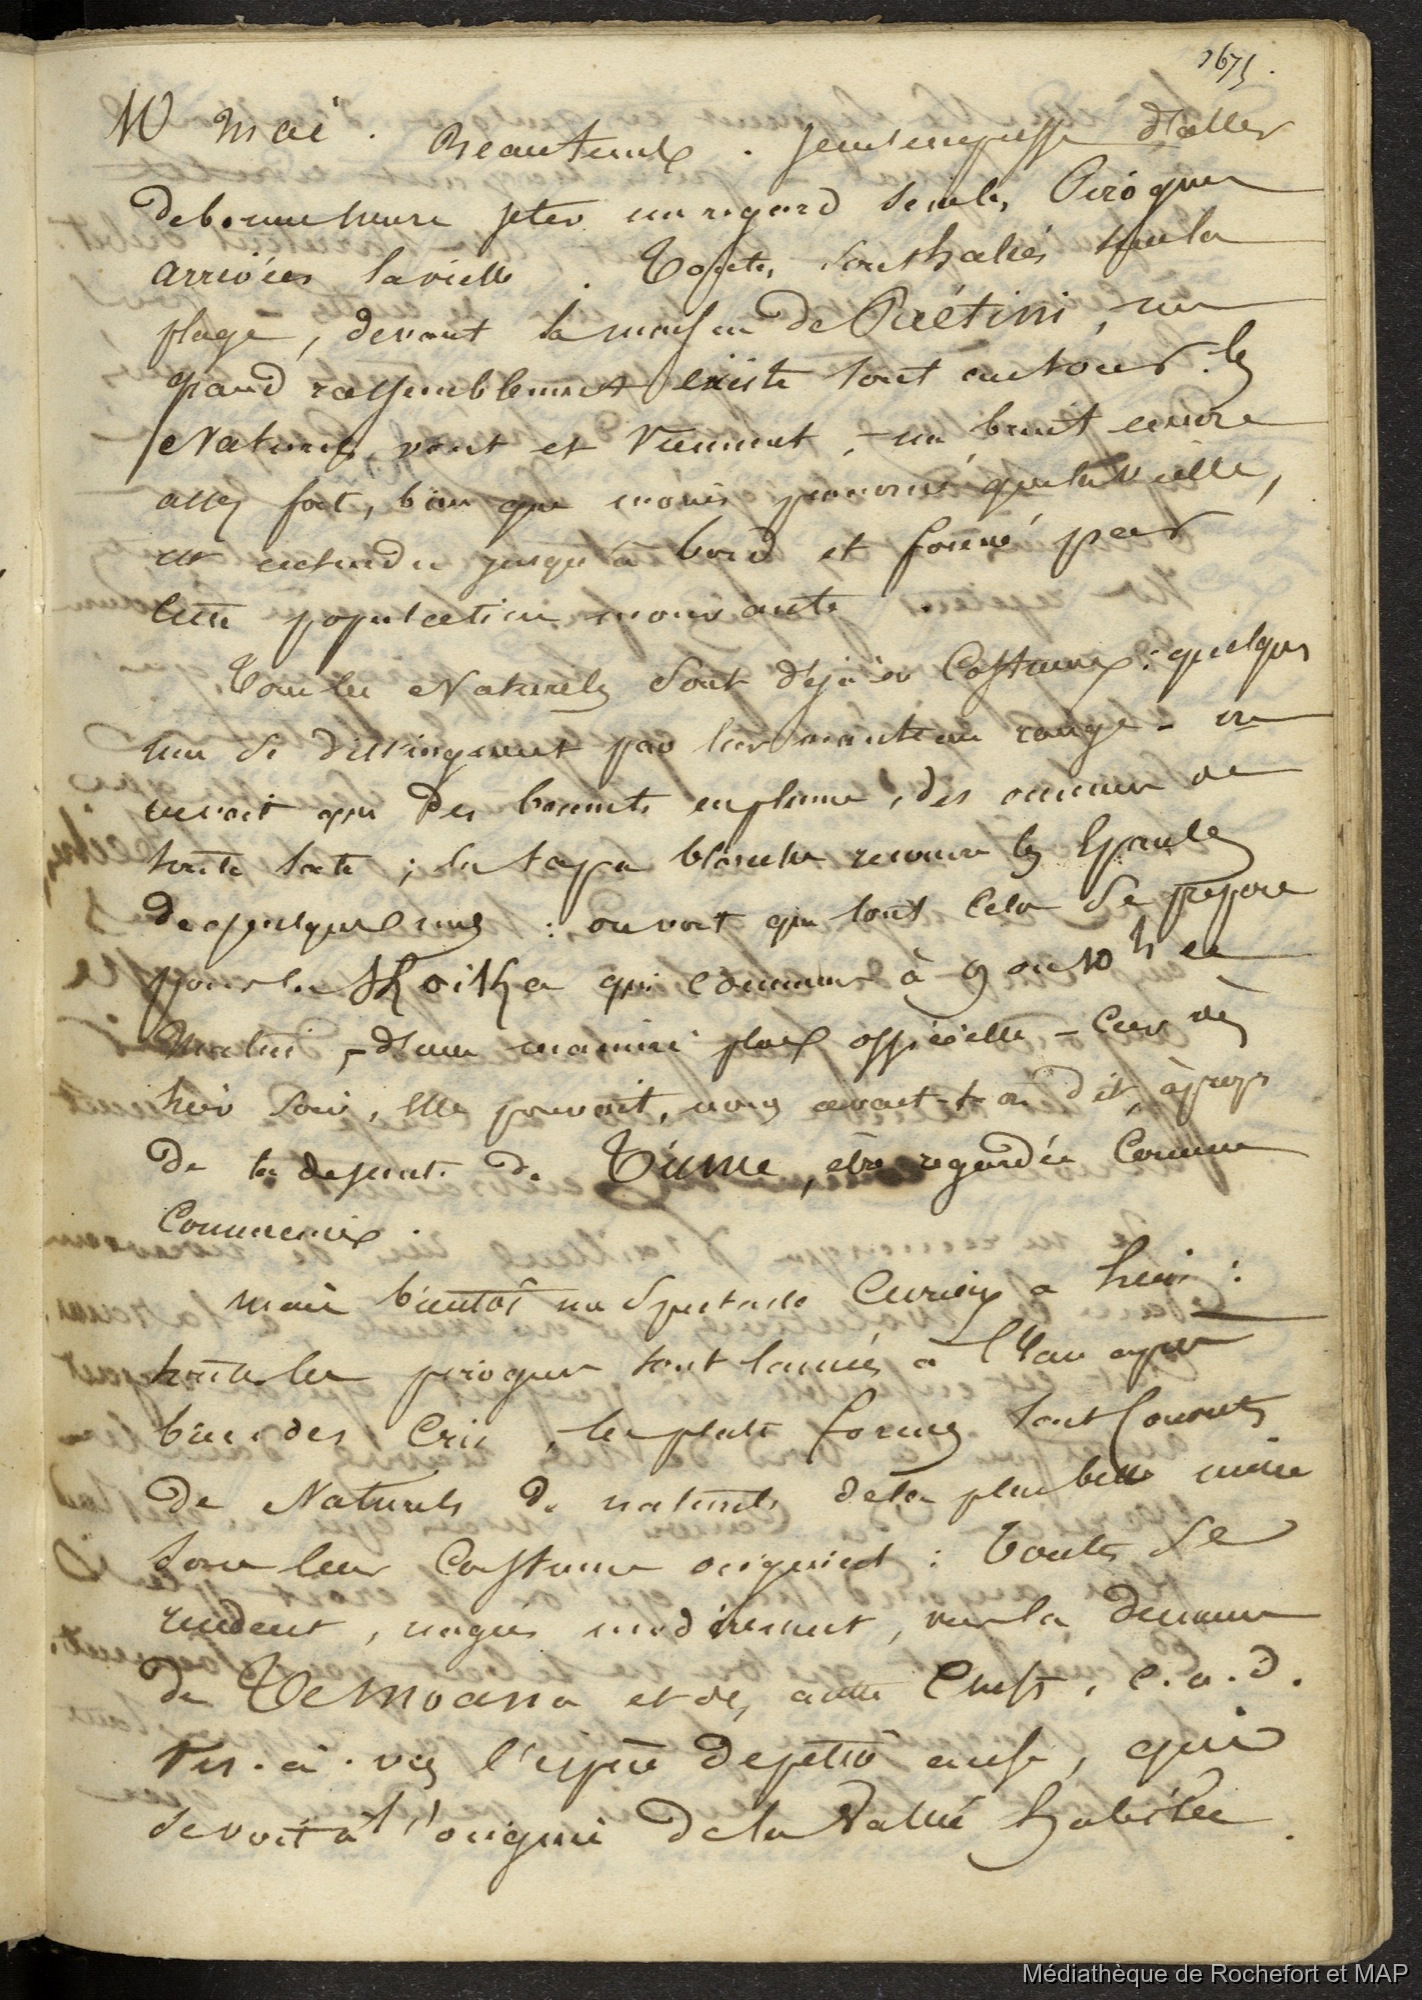 1675.
10 mai. Beau temps. Je m'empresse d'aller
de bonne heure jeter un regard sur les Pirogues
arrivées la veille. Toutes sont halées sur la
plage, devant la maison de Paétini, un
grand rassemblement existe tout autour. les
Naturels vont et viennent, - un bruit encore
assez fort, bien que moins prononcé que la veille,
est entendu jusqu'à bord et formé par
cette population mouvante.
Tous les Naturels sont déjà en Costumes : quelques
uns se distinguent par leur manteau rouge - on
revoit que des bonnets en plume, des
toute sorte ; la tapa blanche recouvre les Epaules
de quelques uns : on voit que tout cela se prépare
pour la Khoika qui commence à 9 ou 10 h du
matin, - d'une manière plus officielle - Car dès
hier soir, elle pouvait, nous avait-t-on dit, à propos
de la de Túme, être regardée Comme
Commencée.
mais bientôt un Spectacle Curieux a lieu :
toutes les pirogues sont lancées à l'Eau après
bien des Cris, les plates formes sont Couvertes
De Naturels de naturels de la plus belle mine
sous leur Costume original : Toutes se
rendent, nagées modérément, vers la demeure
de Témoana et des autres Chefs, c.a.d.
vis-à-vis l'espèce de petite anse, qui
se voit à l'origine de la Vallée habitée.
Médiathèque de Rochefort et MAP